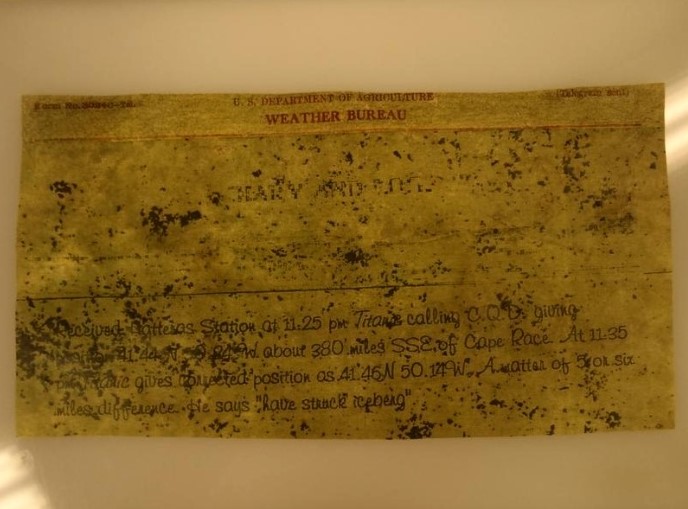 Form No.
(Telegram sent)
U. S. DEPARTMENT OF AGRICULTURE
WEATHER BUREAU
MARY AND
Received Hatteras Station at 11-25 pm Titanic calling C.Q.D. giving
41.44N. about 380 miles SSE of Cape Race. At 11.35
gives corrected position as 41.46N 50.14W. A matter of 5 or six
miles difference. He says "have struck iceberg".